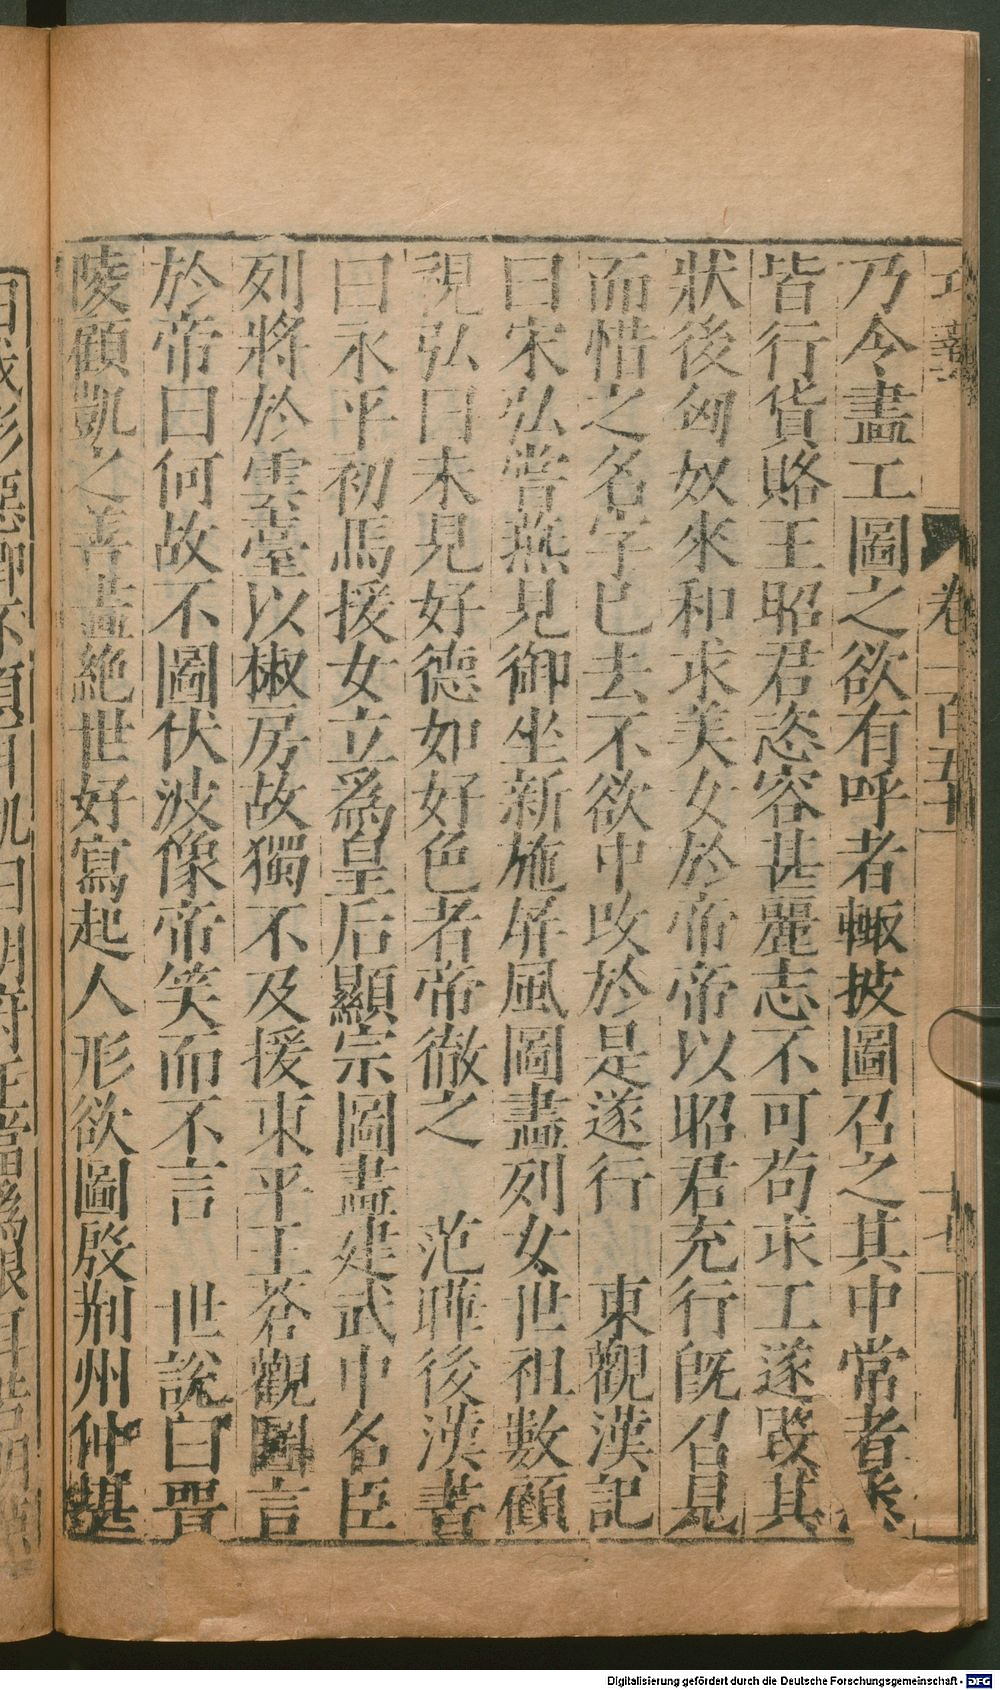 乃令畫工圖之欲有呼者輙披圖召之其中常者
皆行貨賂王昭君恣容甚麗志不可苟求工遂毀其
狀後匈奴來和求美女於帝帝以昭君充行旣召見
而惜之名字已去不欲中攺於是遂行　東觀漢記
曰宋弘嘗燕見御坐新施屏風圖畫列女世祖數顧
視弘曰未見好德如好色者帝徹之　范曄後漢書
曰永平初馬援女立爲皇后顯宗圖畫建武中名臣
列將於雲臺以椒房故獨不及援東平王蒼觀圖言
於帝曰何故不圖伏波像帝笑而不言　世說曰晉
陵顧凱之善畫絶世好寫起人形欲圖殷荆州仲堪
卷一百五十
十七
Digitalisierung gefördert durch die Deutsche Forschungsgemeinschaft - DFG